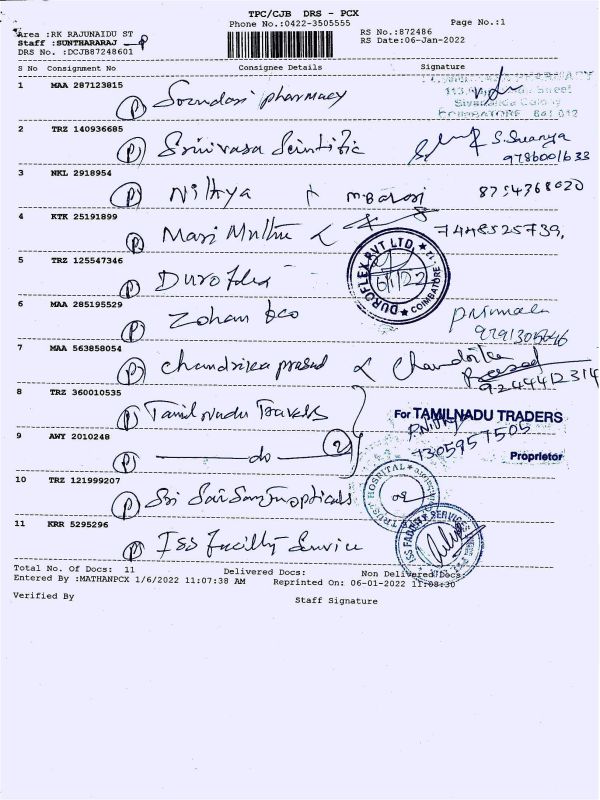 TPC/CJB DRS - PCX
Phone No.:0422-3505555
Page No.:1
Area :RK RAJUNAIDU ST
RS No.:872486
Staff :SUNTHARARAJ
RS Date:06-Jan-2022
DRS No. :DCJB87248601
S No Consignment No Consignee Details Signature
1 MAA 287123815
(P) Soundari pharmacy
Sivananda Colony
COIMBATORE 641 012
2 TRZ 140936685
(P) Srinivasa Scintific S. Saranya
9786001633
3 NKL 2918954
(P) Nithya M. 8754368020
4 KTK 25191899
(P) Mari Muthu 7448525739,
5 TRZ 125547346
(P) Duroflex
DUROFLEX PVT LTD, COIMBATORE
6/1/22
6 MAA 285195529
(P) Zohan &co
7 MAA 563858054
(P) Chandrika prasad Chandrika
Prasad
9244412314
8 TRZ 360010535
(P) Tamil Nadu Travels
For TAMILNADU TRADERS
7305957505
Proprietor
9 AWY 2010248
(P) do (2)
10 TRZ 121999207
(P) Sri opticals
TRUST HOSPITAL
11 KRR 5295296
(P) Iss Facility Service
ISS FACILITY SERVICES
Total No. Of Docs: 11 Delivered Docs: Non Delivered Docs:
Entered By :MATHANPCX 1/6/2022 11:07:38 AM Reprinted On: 06-01-2022 11:08:30
Verified By Staff Signature